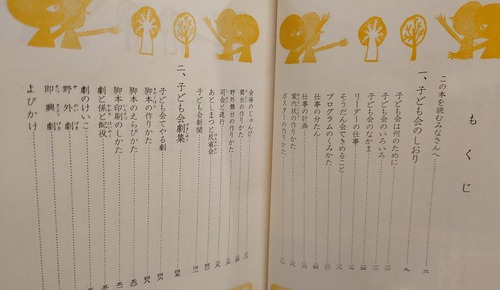 もくじ
この本を読むみなさんへ
一、子ども会のしおり
子ども会は何のために
子ども会のいろいろ
子ども会のなかま
リーダーの仕事
そうだん会できめること
プログラムのくみかた
仕事の分たん
仕事の計画
案内状の作りかた
ポスターの作りかた
会場のじゅんび
舞台の作りかた
野外舞台の作りかた
司会と進行
あとしまつと反省会
子ども会新聞
二、子ども会劇集
子ども会でやる劇
脚本の作りかた
脚本のえらびかた
脚本印刷のしかた
劇と係と配役
劇のけいこ
野外劇
即興劇
よびかけ